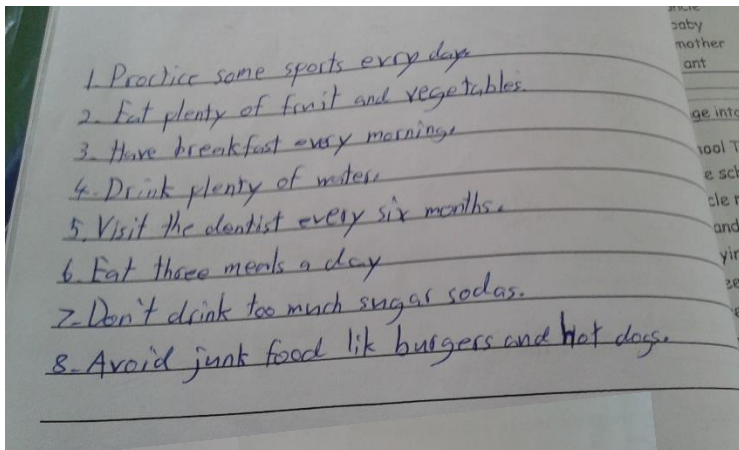 1. Practice some sports evry day.
2. Eat plenty of fruit and vegetables.
3. Have breakfast every morning.
4. Drink plenty of water.
5. Visit the dentist every six months.
6. Eat three meals a day
7- Don't drink too much sugar sodas.
8- Avoid junk food lik burgers and Hot dogs.
uncle
baby
mother
ant
ge into